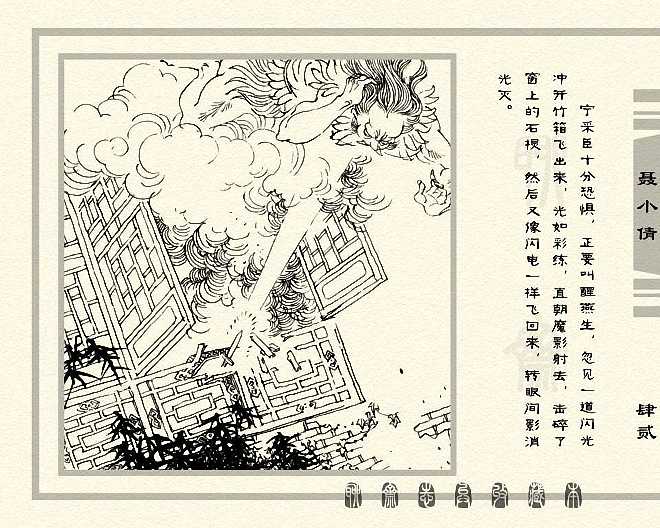 宁采臣十分恐惧，正要叫醒燕生，忽见一道闪光
冲开竹箱飞出来，光如彩练，直朝魔影射去，击碎了
窗上的石棂，然后又像闪电一样飞回来，转眼间影消
光灭。
聂小倩
肆贰